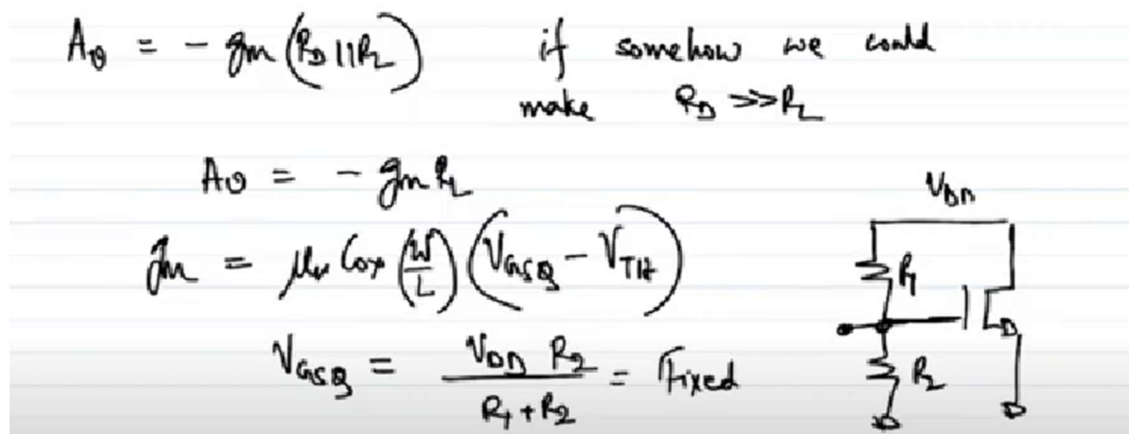 Av = - gm (RD || RL) if somehow we could
make RD >> RL
Av = - gm RL
gm = μn Cox (W/L) (VGSQ - VTH)
VGSQ = VDD R2 / R1 + R2 = Fixed
VDD
R1
R2